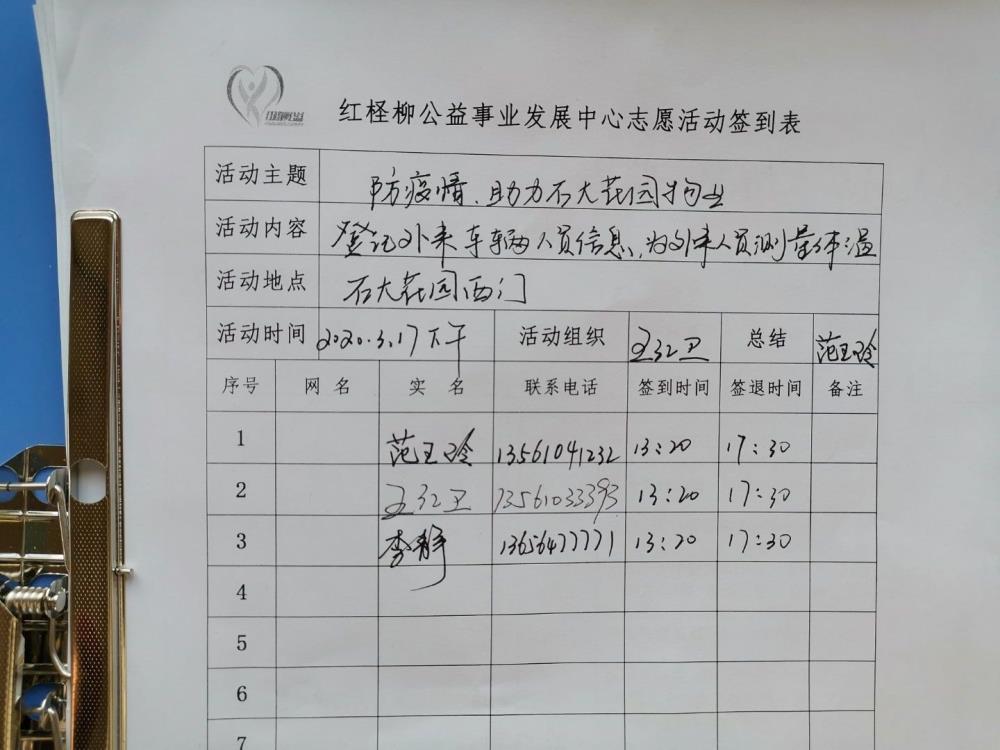 红柽柳公益事业发展中心志愿活动签到表
活动主题 防疫情、助力石大花园物业
活动内容 登记外来车辆人员信息,为外来人员测量体温
活动地点 石大花园西门
活动时间 2020.3.17下午 活动组织 王红卫 总结 范玉玲
序号 网名 实名 联系电话 签到时间 签退时间 备注
1 范玉玲 13561041232 13:20 17:30
2 王红卫 13561033393 13:20 17:30
3 李静 13656477771 13:20 17:30
4
5
6
7